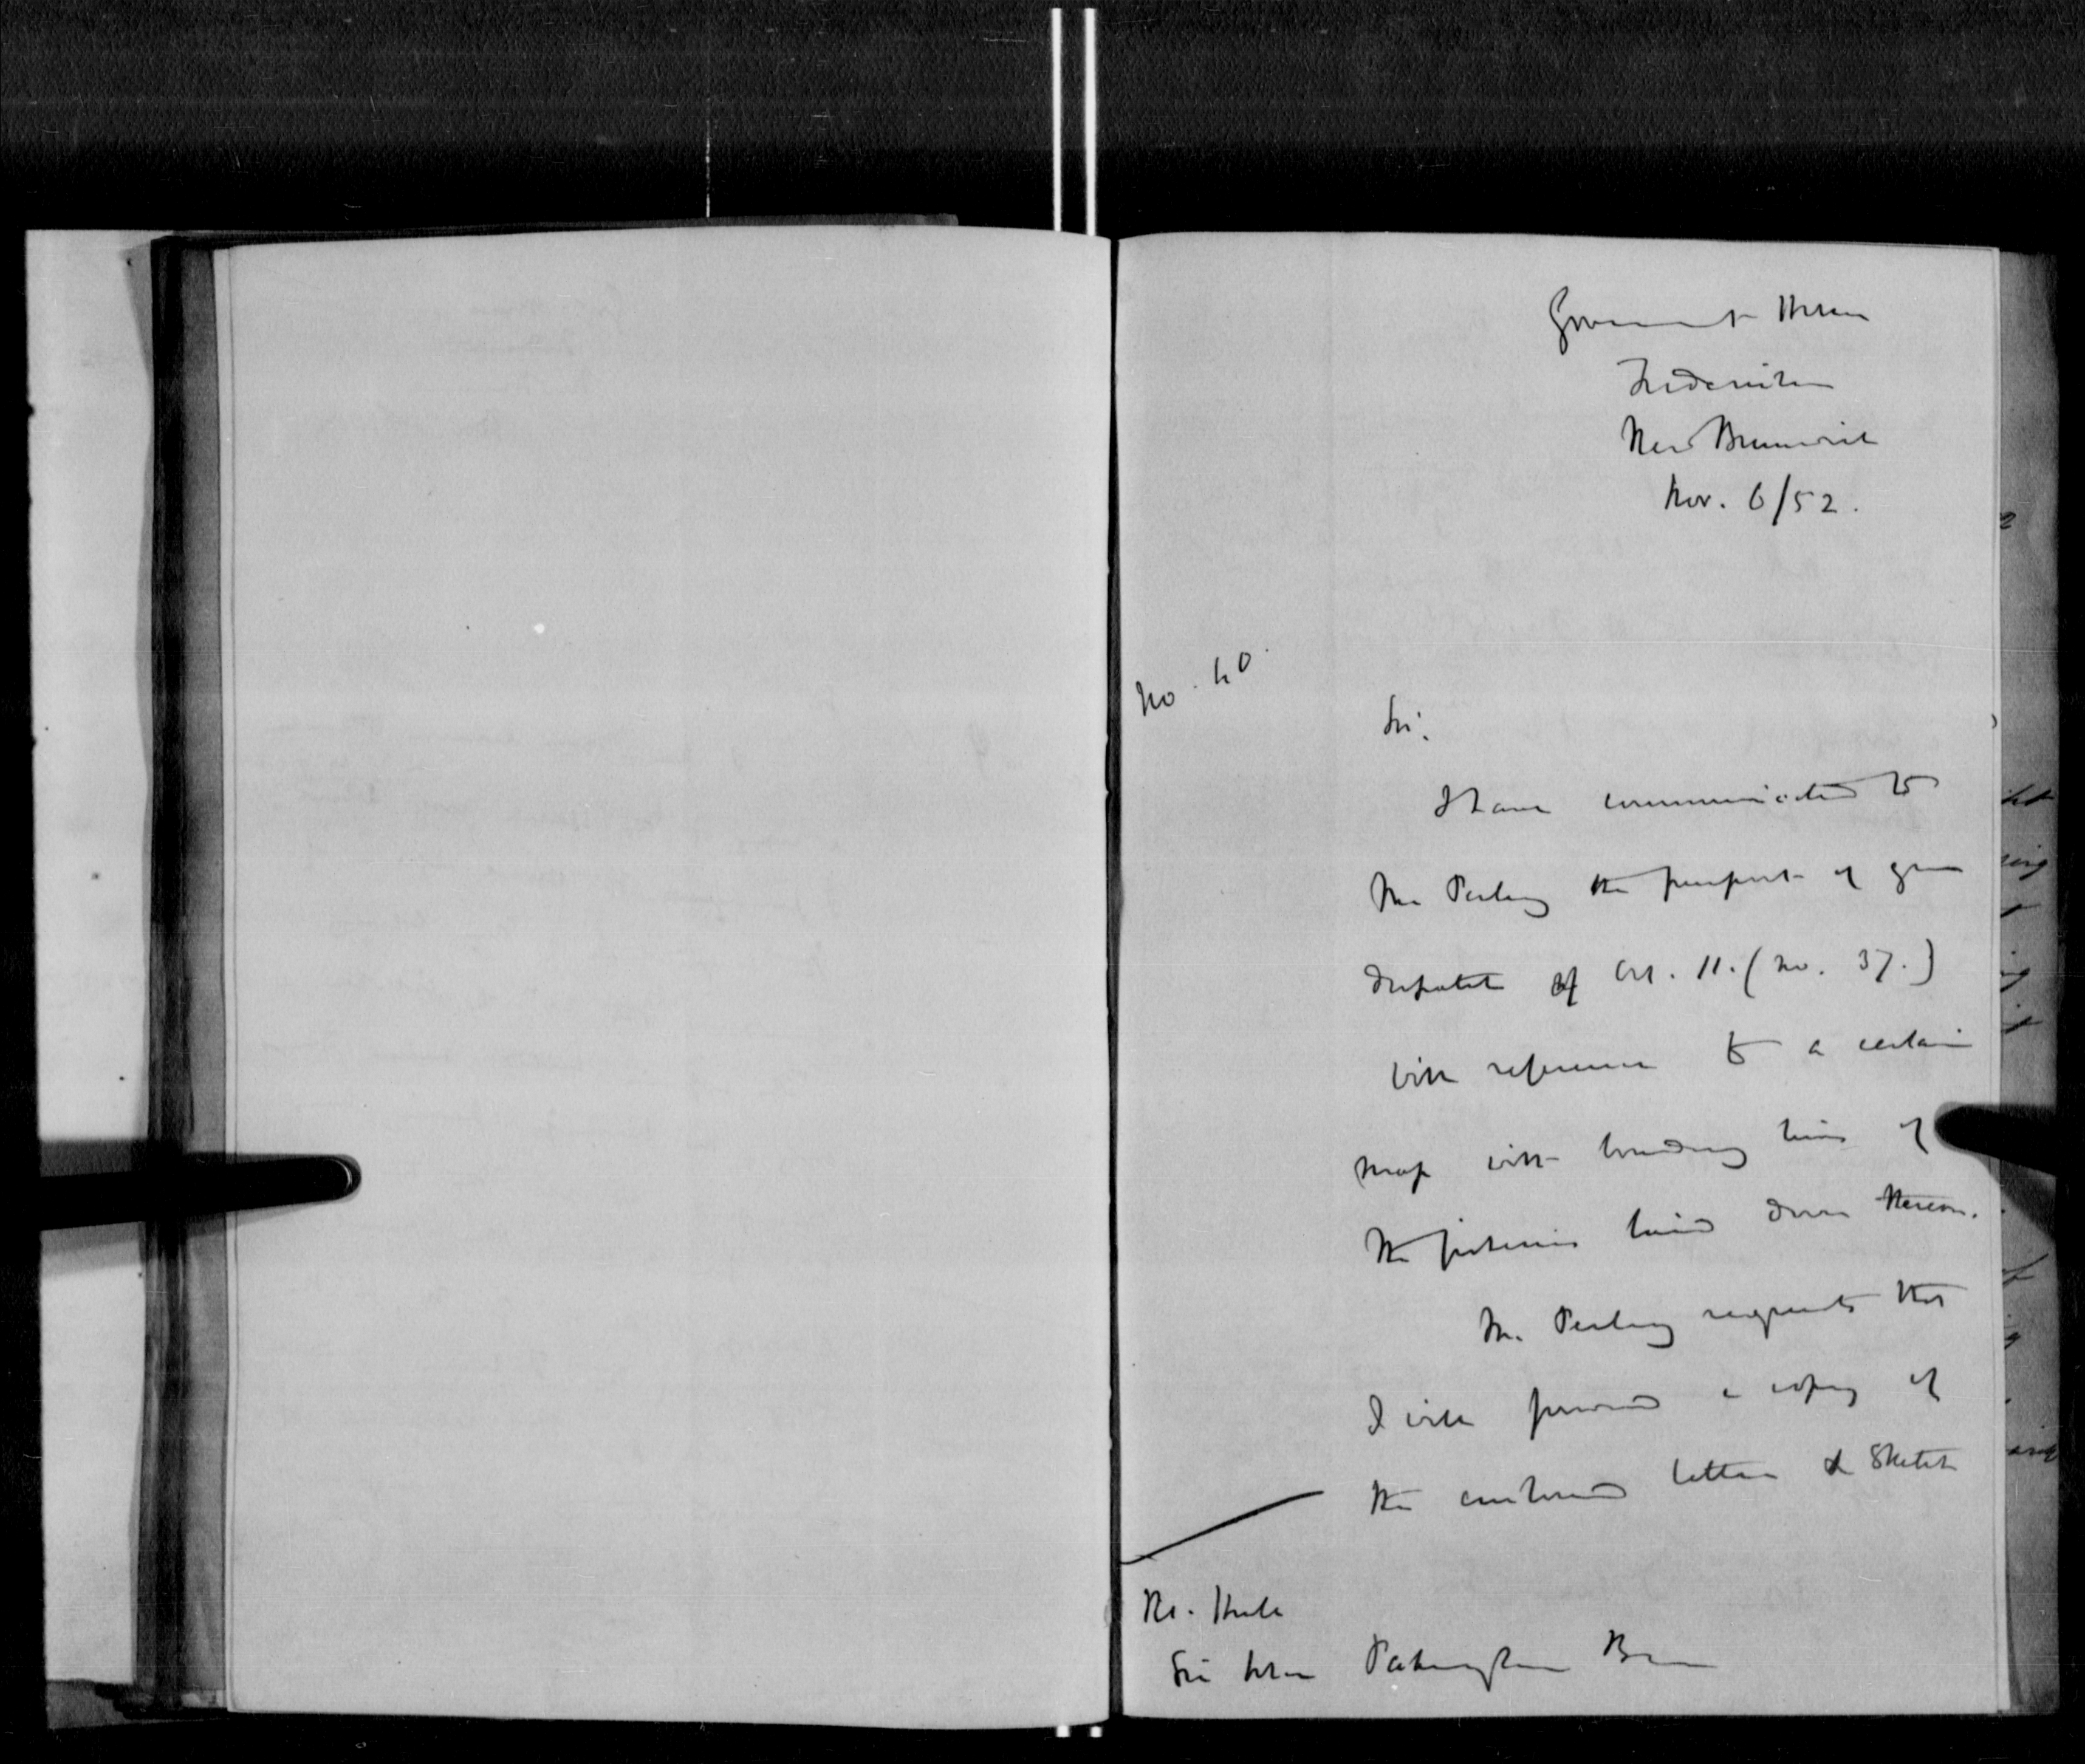 Government House
Fredericton
New Brunswick
Nov. 6/52.
No. 40.
Sir,
I have communicated to
Mr Perley the purport of your
despatch of Oct. 11. (No. 37.)
with reference to a certain
map with boundary lines of
the fisheries laid down thereon.
Mr. Perley requests that
I will forward a copy of
the enclosed letter & sketch
Sir John Pakington